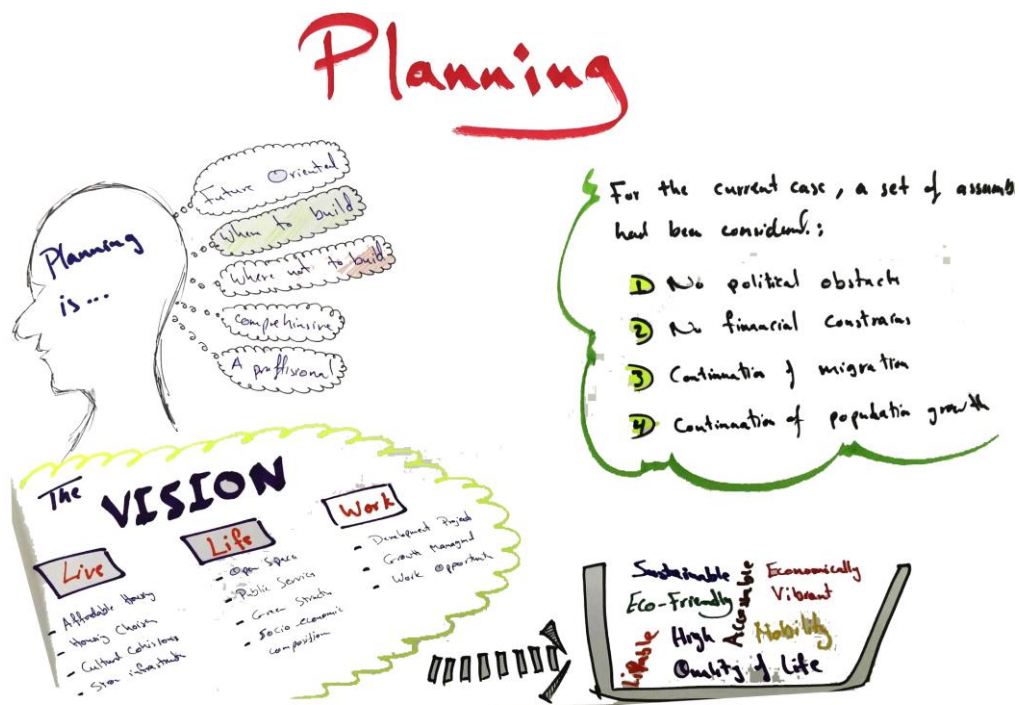 Planning
Planning
is...
Future Oriented
When to build
Where not to build
comprehinsive
A proffisional
For the current case, a set of assumb
had been consident.:
1 No political obstacls
2 No financial constrains
3 Continuation of migration
4 Continuation of population growth
The VISION
Live
- Affordable Housing
- Housing Choises
- Cultural
- Stron infrastructr
Life
- Open Spaces
- Public Services
- Green Streets
- Socio-economic
composition
Work
- Development Project
- Growth Managmnt
- Work Opportunity
Sustainable
Eco-Friendly
Accessable
Economically
Vibrant
Livable
High
Mobility
Quality of Life